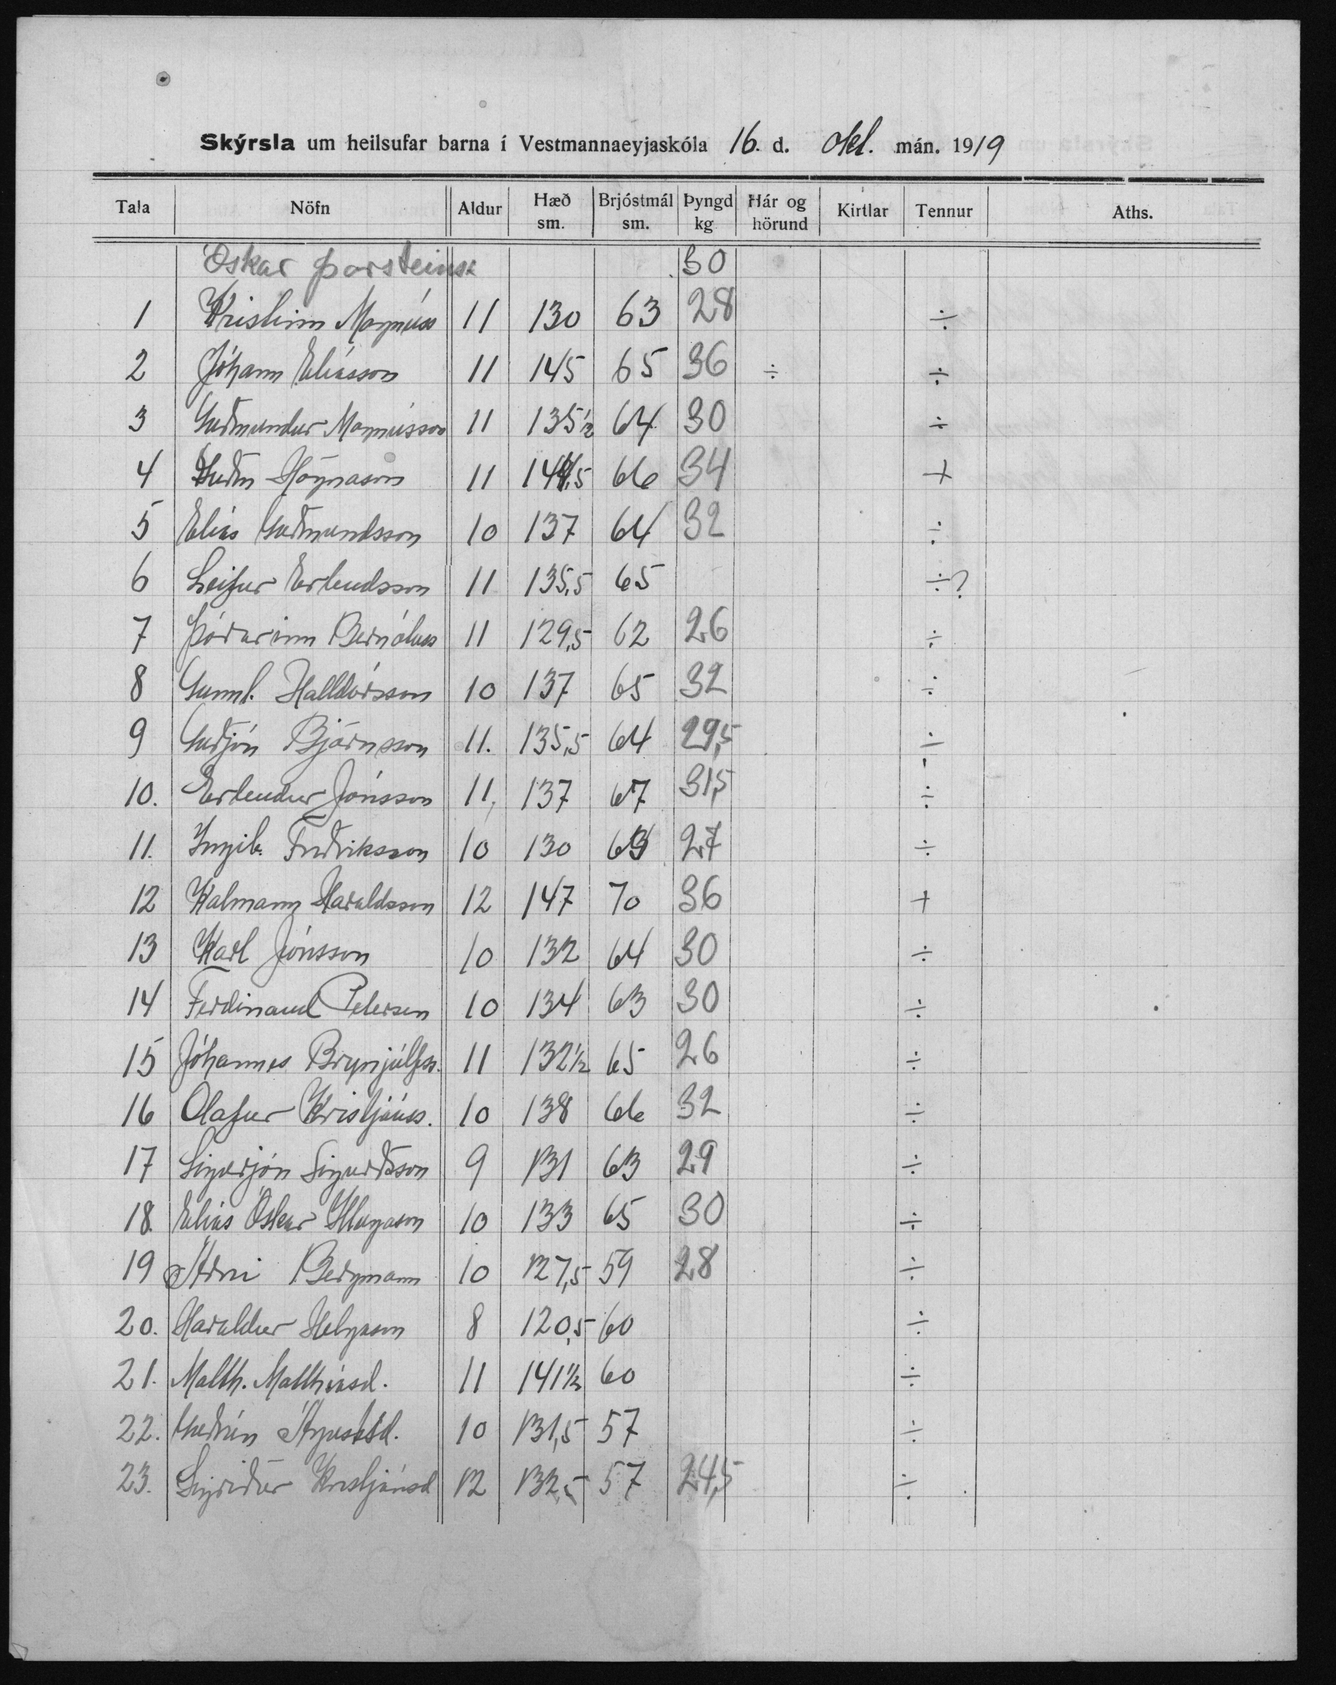 Skýrsla um heilsufar barna í Vestmannaeyjaskóla 16. d. okt. mán. 1919
Tala Nöfn Aldur Hæð sm. Brjóstmál sm. Þyngd kg Hár og hörund Kirtlar Tennur Aths.
Óskar Þorsteinss. 30
1 Kristinn Magnúss 11 130 63 28 ÷
2 Jóhann Elíasson 11 145 65 36 ÷ ÷
3 Guðmundur Magnússon 11 135½ 64 30 ÷
4 Guðm 11 66 34 +
5 Elías Guðmundsson 10 137 64 32 ÷
6 Leifur Erlendsson 11 135,5 65 ÷?
7 Þórarinn Bernótuss 11 129,5 62 26 ÷
8 Gunnl. Halldórsson 10 137 65 32 ÷
9 Guðjón Björnsson 11. 135,5 64 29,5 ÷
10. Erlendur Jónsson 11, 137 67 31,5 ÷
11. Ingib. Friðriksson 10 130 63 27 ÷
12 Kalmann Haraldsson 12 147 70 36 +
13 Karl Jónsson 10 132 64 30 ÷
14 Ferdinand Petersen 10 134 63 30 ÷
15 Jóhannes Brynjúlfss. 11 132½ 65 26 ÷
16 Olafur Kristjánss. 10 138 66 32 ÷
17 Sigurjón Sigurðsson 9 131 63 29 ÷
18. Elías Óskar Illugason 10 133 65 30 ÷
19 Árni Bergmann 10 127,5 59 28 ÷
20. Haraldur Helgason 8 120,5 60 ÷
21. Matth. Matthíasd. 11 141½ 60 ÷
22. Guðrún Ágústsd. 10 131,5 57 ÷
23. Sigríður Kristjánsd 12 132,5 57 24,5 ÷